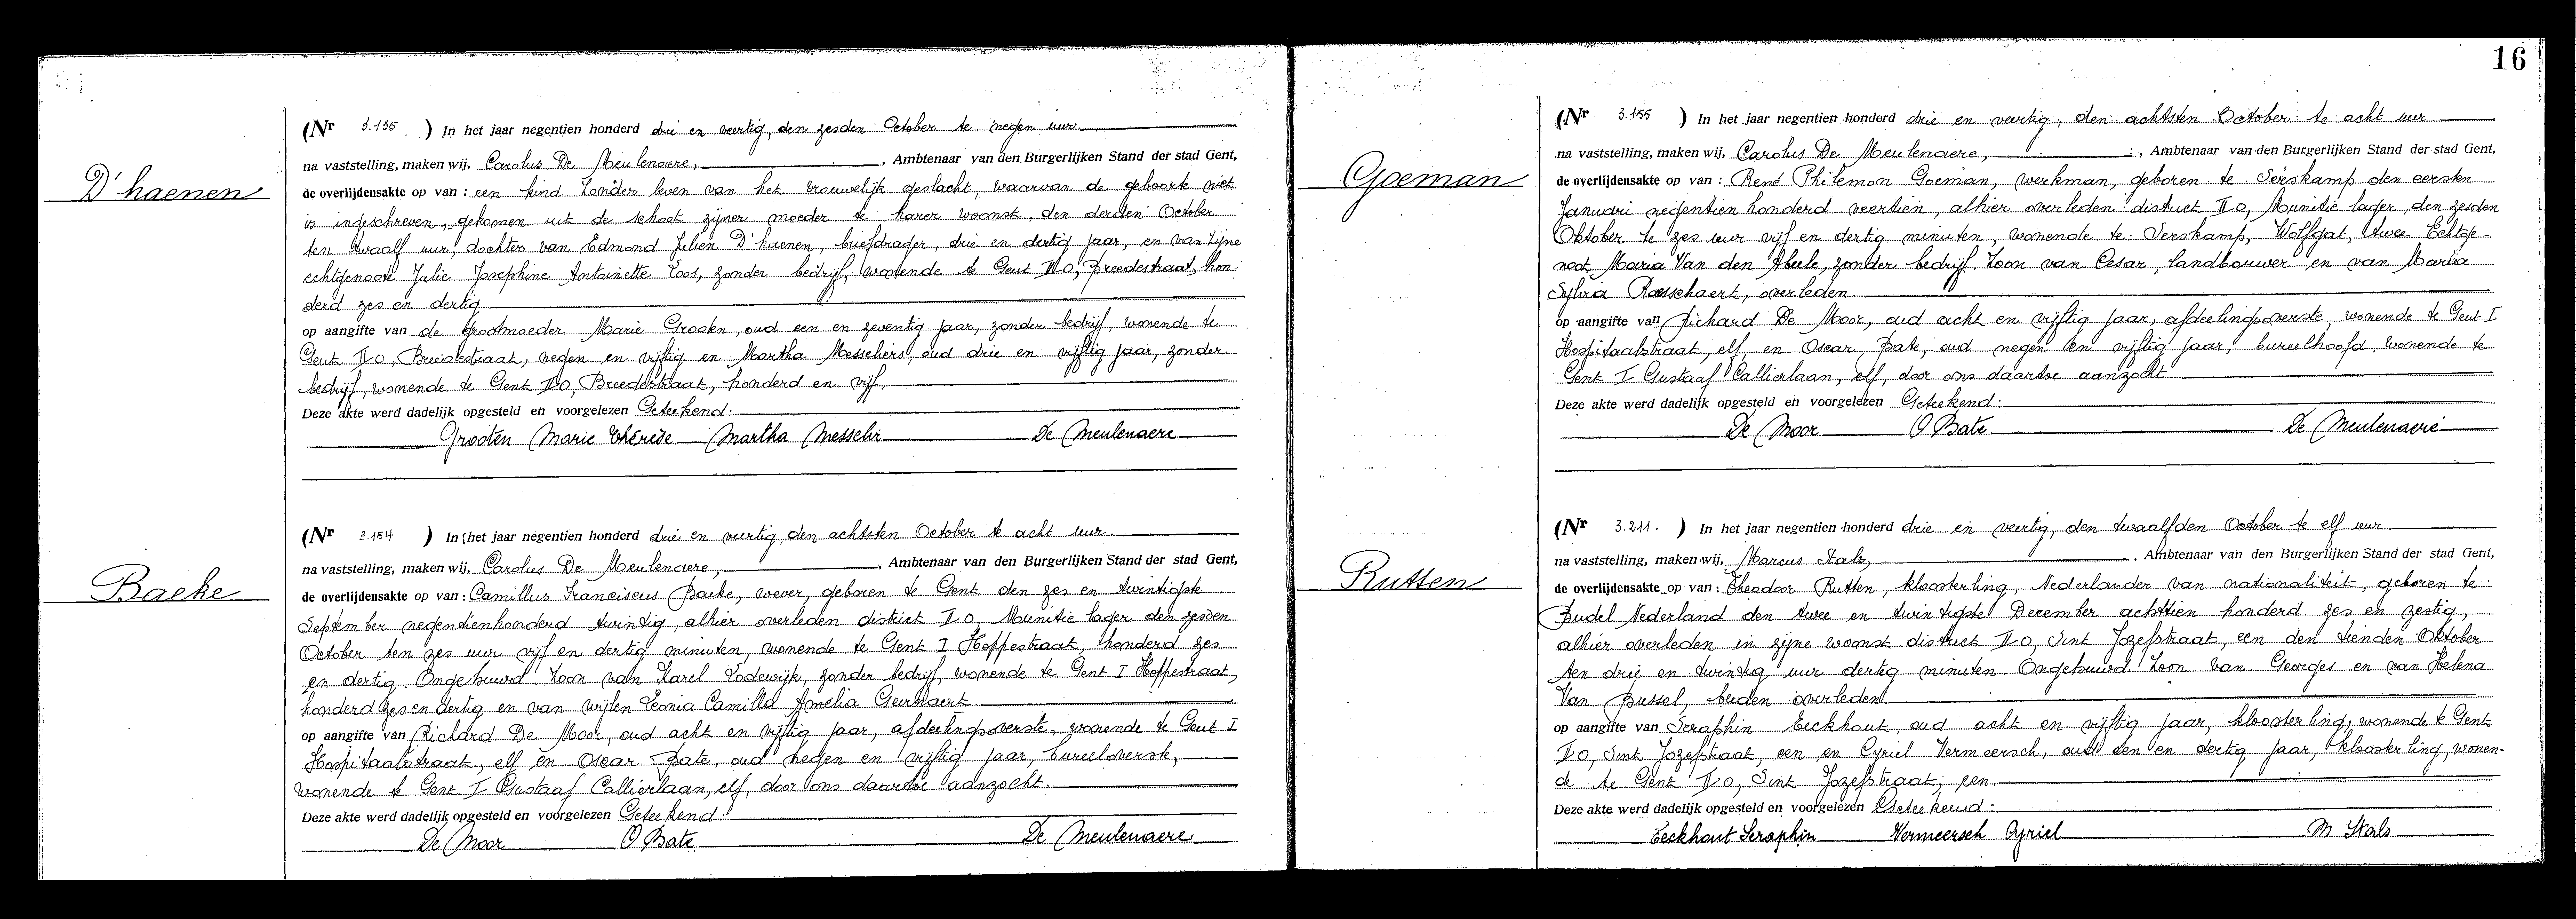 D'haenen
(Nr 3.135. ) In het jaar negentien honderd drie en veertig, den zesden October te negen uur
na vaststelling, maken wij, Carolus De Meulenaere, , Ambtenaar van den Burgerlijken Stand der stad Gent,
de overlijdensakte op van : een kind zonder leven van het vrouwelijk geslacht, waarvan de geboorte niet
is ingeschreven, gekomen uit de schoot zijner moeder te harer woonst, den derden October
ten twaalf uur, dochter van Edmond Julien D'haenen, briefdrager, drie en dertig jaar, en van zijne
echtgenoote Julie Josephine Antoinette Loos, zonder bedrijf, wonende te Gent II O, Breedestraat, hon-
derd zes en dertig
op aangifte van de grootmoeder Marie Grooten, oud een en zeventig jaar, zonder bedrijf, wonende te
Gent II O, Breedestraat, negen en vijftig en Martha Messeliers, oud drie en vijftig jaar, zonder
bedrijf, wonende te Gent II O, Breedestraat, honderd en vijf.
Deze akte werd dadelijk opgesteld en voorgelezen Geteekend:
Grooten Marie Thérèse Martha Messelir De Meulenaere
Baeke
(Nr 3.154 ) In het jaar negentien honderd drie en veertig, den achtsten October te acht uur.
na vaststelling, maken wij, Carolus De Meulenaere, , Ambtenaar van den Burgerlijken Stand der stad Gent,
de overlijdensakte op van : Camillus Franciscus Baeke, wever, geboren te Gent den zes en twintigste
September negentienhonderd twintig, alhier overleden district II O, Munitie lager den zesden
October ten zes uur vijf en dertig minuten, wonende te Gent I Hoppestraat, honderd zes
en dertig. Ongehuwd. Zoon van Karel Lodewijk, zonder bedrijf, wonende te Gent I Hoppestraat,
honderd zes en dertig en van wijlen Leonia Camilla Amelia Gevaert.
op aangifte van Richard De Moor, oud acht en vijftig jaar, afdeelingsoverste, wonende te Gent I
Hospitaalstraat, elf en Oscar Bate, oud negen en vijftig jaar, bureeloverste,
wonende te Gent I Gustaaf Callierlaan, elf, door ons daartoe aanzocht.
Deze akte werd dadelijk opgesteld en voorgelezen Geteekend:
De Moor O Bate De Meulenaere
16
Goeman
(Nr 3.155 ) In het jaar negentien honderd drie en veertig, den achtsten October te acht uur
na vaststelling, maken wij, Carolus De Meulenaere, , Ambtenaar van den Burgerlijken Stand der stad Gent,
de overlijdensakte op van : René Philemon Goeman, werkman, geboren te Serskamp den eersten
Januari negentien honderd veertien, alhier overleden district II O, Munitie lager, den zesden
Oktober te zes uur vijf en dertig minuten, wonende te Serskamp, Wolfgat, twee Echtge-
noot Maria Van den Abeele, zonder bedrijf Zoon van Cesar, landbouwer en van Maria
Sylvia Rasschaert, overleden.
op aangifte van Richard De Moor, oud acht en vijftig jaar, afdeelingsoverste, wonende te Gent I
Hospitaalstraat, elf, en Oscar Bate, oud negen en vijftig jaar, bureelhoofd, wonende te
Gent I Gustaaf Callierlaan, elf, door ons daartoe aanzocht
Deze akte werd dadelijk opgesteld en voorgelezen Geteekend:
De Moor O Bate De Meulenaere
Rutten
(Nr 3.211. ) In het jaar negentien honderd drie en veertig, den twaalfden October te elf uur
na vaststelling, maken wij, Marcus Stals, , Ambtenaar van den Burgerlijken Stand der stad Gent,
de overlijdensakte op van : Theodoor Rutten, kloosterling, Nederlander van nationaliteit, geboren te
Budel Nederland den twee en twintigste December achttien honderd zes en zestig,
alhier overleden in zijne woonst district II O, Sint Jozefstraat, een den tienden Oktober
ten drie en twintig uur dertig minuten. Ongehuwd Zoon van Georges en van Helena
Van Bussel, beiden overleden
op aangifte van Seraphin Eeckhout, oud acht en vijftig jaar, kloosterling, wonende te Gent
II O, Sint Jozefstraat, een en Cyriel Vermeersch, oud een en dertig jaar, kloosterling, wonen-
de te Gent II O, Sint Jozefstraat, een.
Deze akte werd dadelijk opgesteld en voorgelezen Geteekend:
Eeckhout Seraphin Vermeersch Cyriel M Stals